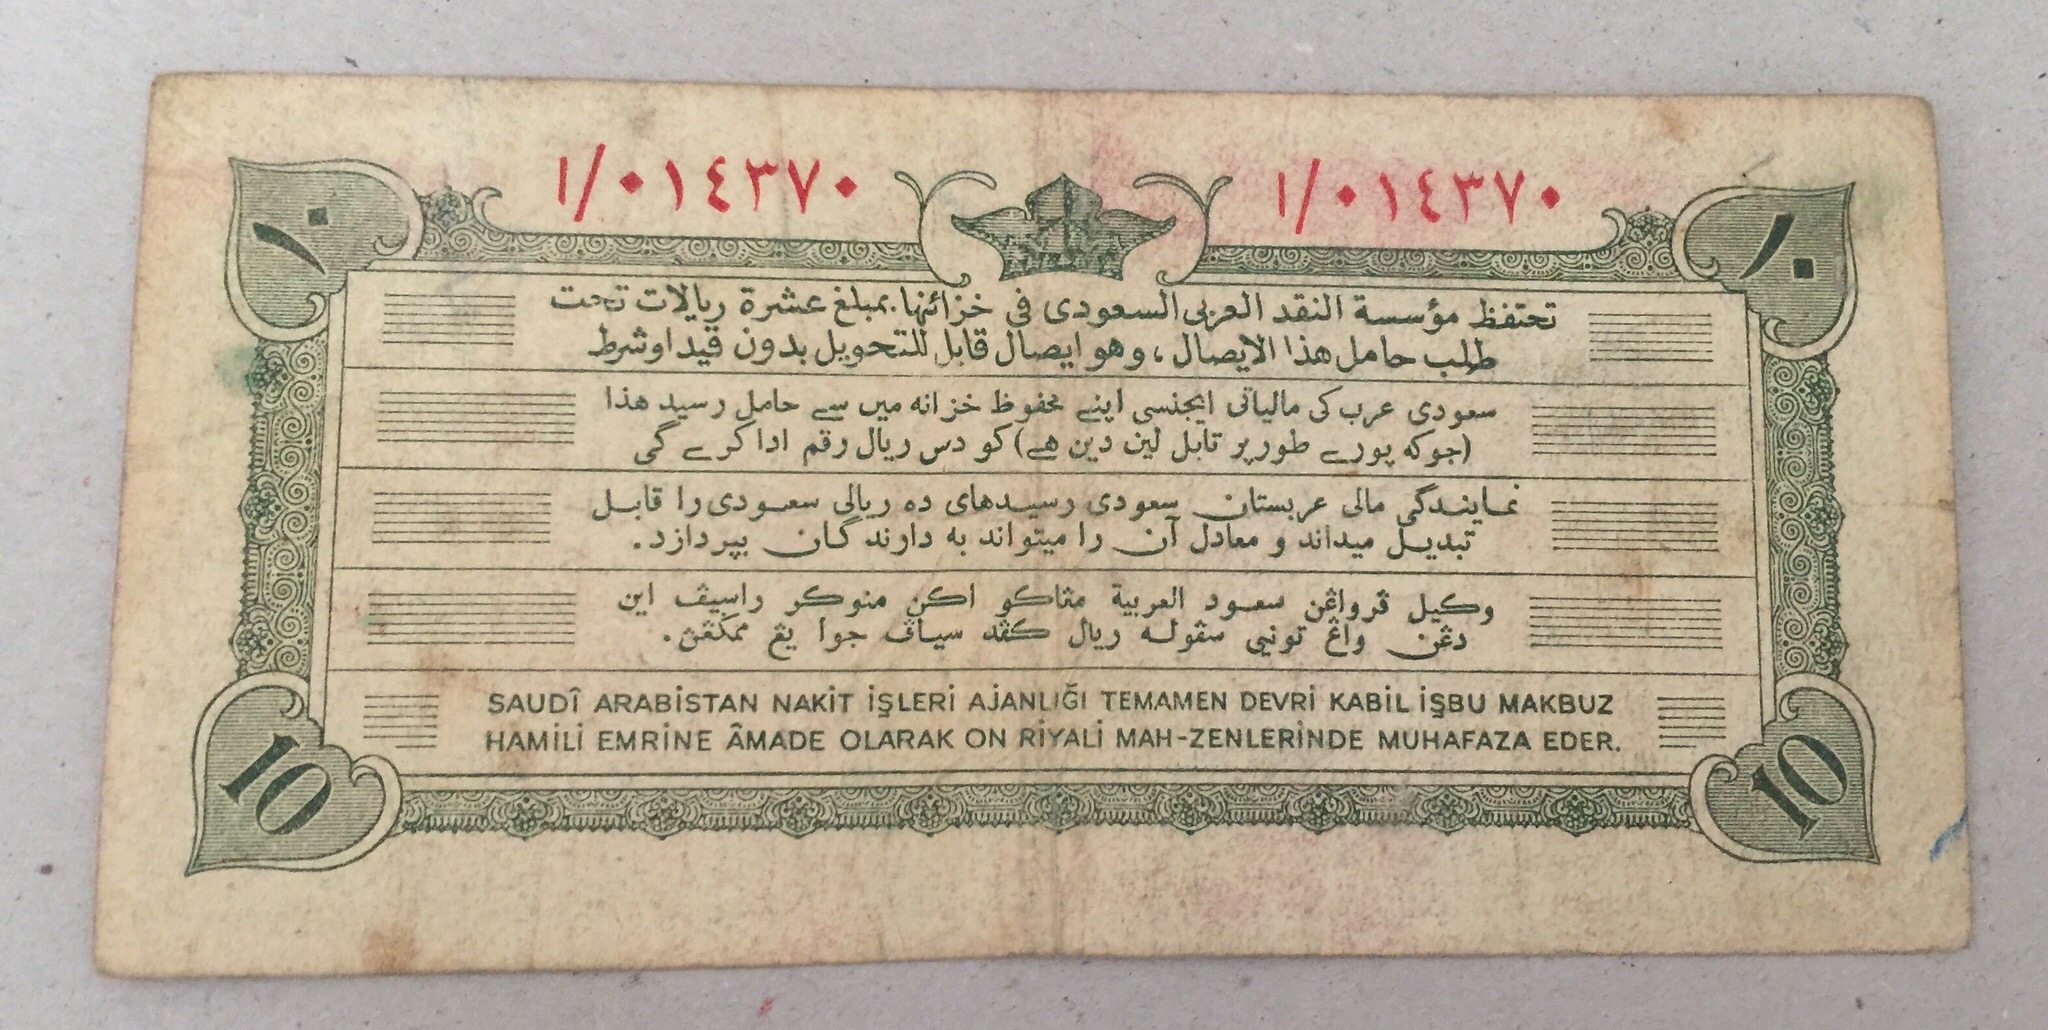 ١/٠١٤٣٧٠ ١/٠١٤٣٧٠
١٠ ١٠
تحتفظ مؤسسة النقد العربى السعودى فى خزائنها. بمبلغ عشرة ريالات تحت
طلب حامل هذا الايصال، وهو ايصال قابل للتحويل بدون قيد اوشرط
سعودی عرب کی مالیاتی ایجنسی اپنے محفوظ خزانه میں سے حامل رسید هذا
(جو که پورے طور پر تابل لین دین هے) کو دس ریال رقم ادا کرے گی
نمایندگی مالی عربستان سعودی رسیدهای ده ریالی سعودی را قابل
تبدیل میداند و معادل آن را میتواند به دارندگان بپردازد.
وكيل ڤرواڠن سعود العربية مڽاكو اكن منوكر راسيڤ اين
دڠن واڠ تونى سڤوله ريال كڤد سياڤ جوا يڠ ممڬڠن.
SAUDÎ ARABİSTAN NAKİT İŞLERİ AJANLIĞİ TEMAMEN DEVRİ KABİL İŞBU MAKBUZ
HAMİLİ EMRİNE ÂMADE OLARAK ON RİYALİ MAH-ZENLERİNDE MUHAFAZA EDER.
10 10